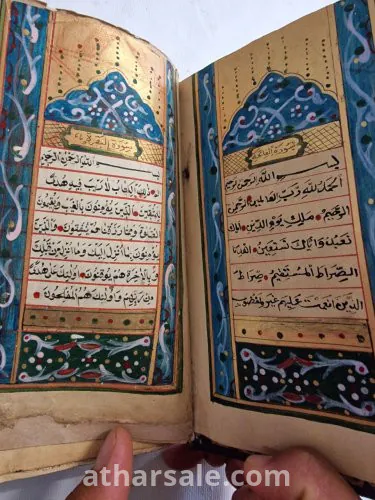 سورة الفاتحة
بسم الله الرحمن الرحيم
الحمد لله رب العالمين الرحمن
الرحيم ملك يوم الدين اياك
نعبد واياك نستعين اهدنا
الصراط المستقيم صراط
الذين انعمت عليهم غير المغضوب
سورة البقرة
بسم الله الرحمن الرحيم
ذلك الكتاب لا ريب فيه هدى
للمتقين الذين يؤمنون بالغيب ويقيمون
الصلوة ومما رزقناهم ينفقون والذين
يؤمنون بما انزل اليك وما انزل من قبلك
وبالاخرة هم يوقنون اولئك على هدى
من ربهم واولئك هم المفلحون
atharsale.com